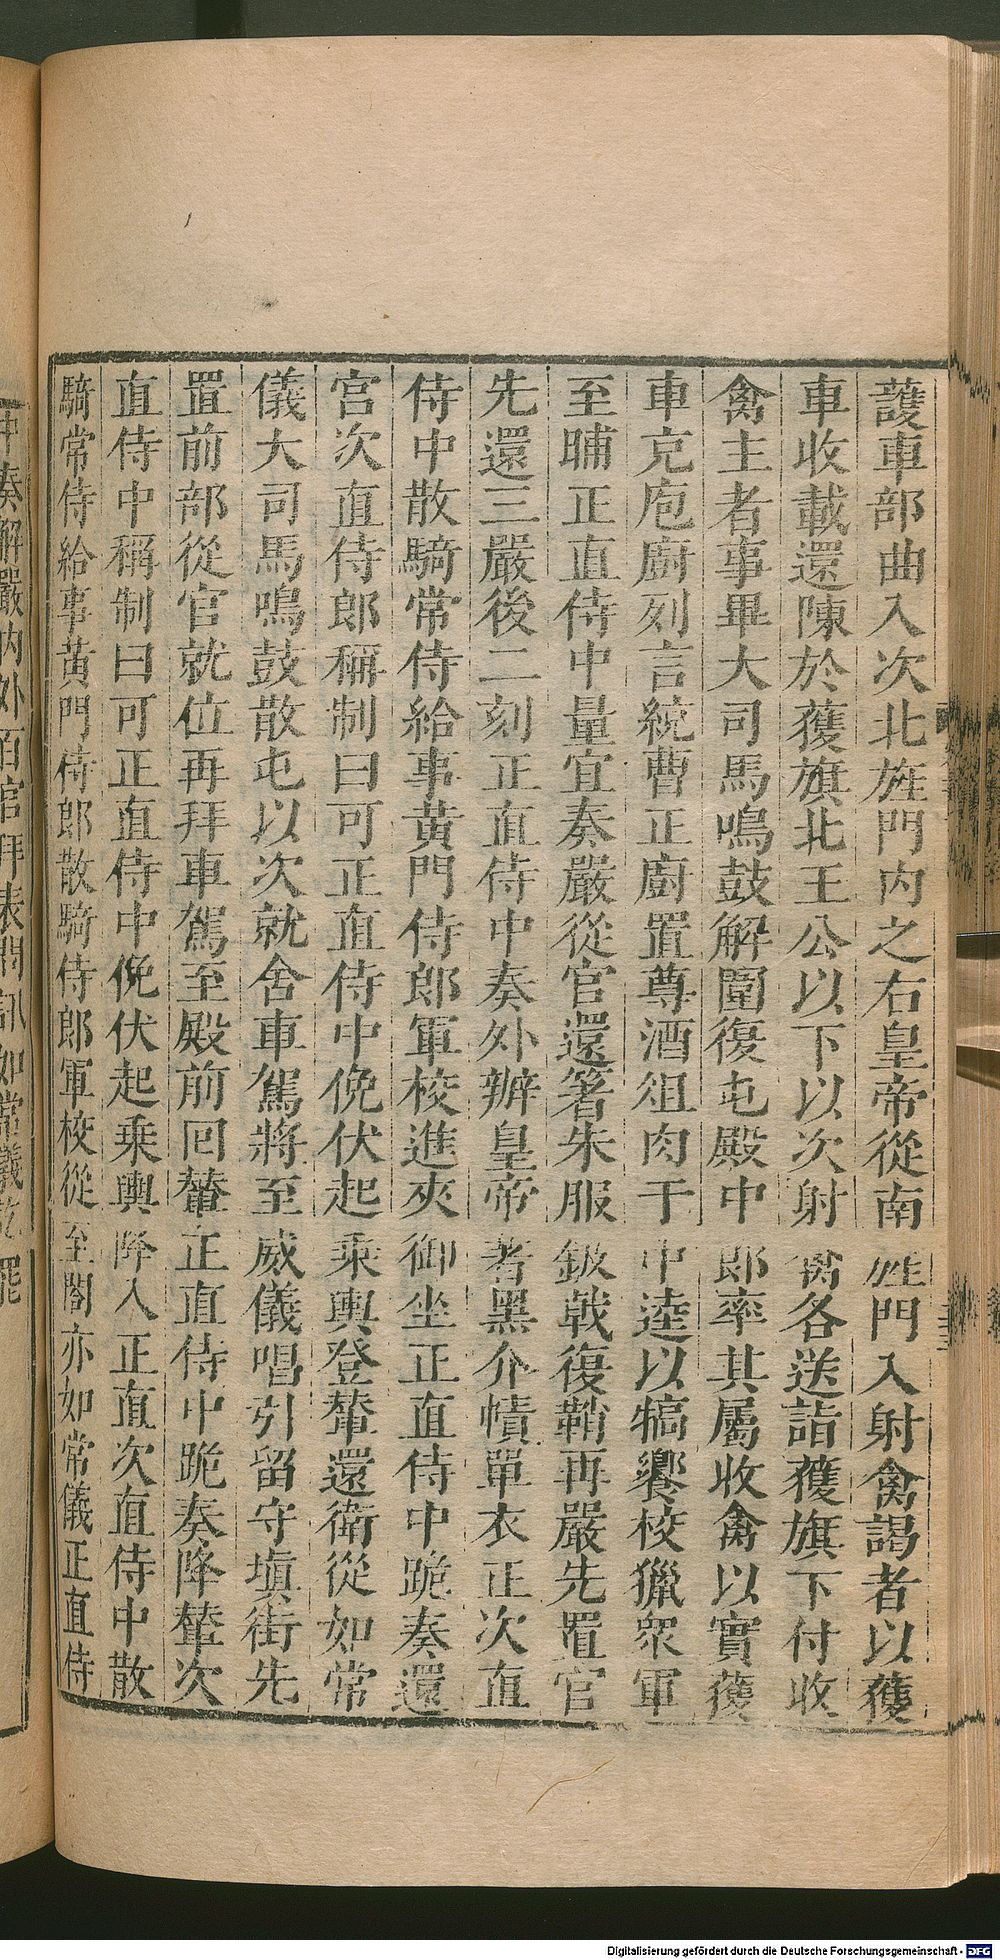 護車部曲入次北旌門內之右皇帝從南旌門入射禽謁者以獲
車收載還陳於獲旗北王公以下以次射禽各送詣獲旗下付收
禽主者事畢大司馬鳴鼓解圍復屯殿中郎率其屬收禽以實獲
車充庖廚列言統曹正廚置尊酒俎肉于中逵以犒饗校獵眾軍
至晡正直侍中量宜奏嚴從官還著朱服鈒戟復鞘再嚴先置官
先還三嚴後二刻正直侍中奏外辦皇帝著黑介幘單衣正次直
侍中散騎常侍給事黃門侍郎軍校進夾御坐正直侍中跪奏還
宮次直侍郎稱制曰可正直侍中俛伏起乘輿登輦還衛從如常
儀大司馬鳴鼓散屯以次就舍車駕將至威儀唱引留守填街先
置前部從官就位再拜車駕至殿前回輦正直侍中跪奏降輦次
直侍中稱制曰可正直侍中俛伏起乘輿降入正直次直侍中散
騎常侍給事黃門侍郎散騎侍郎軍校從至閤亦如常儀正直侍
中奏解嚴內外百官拜表問訊如常儀訖罷
Digitalisierung gefördert durch die Deutsche Forschungsgemeinschaft - DFG